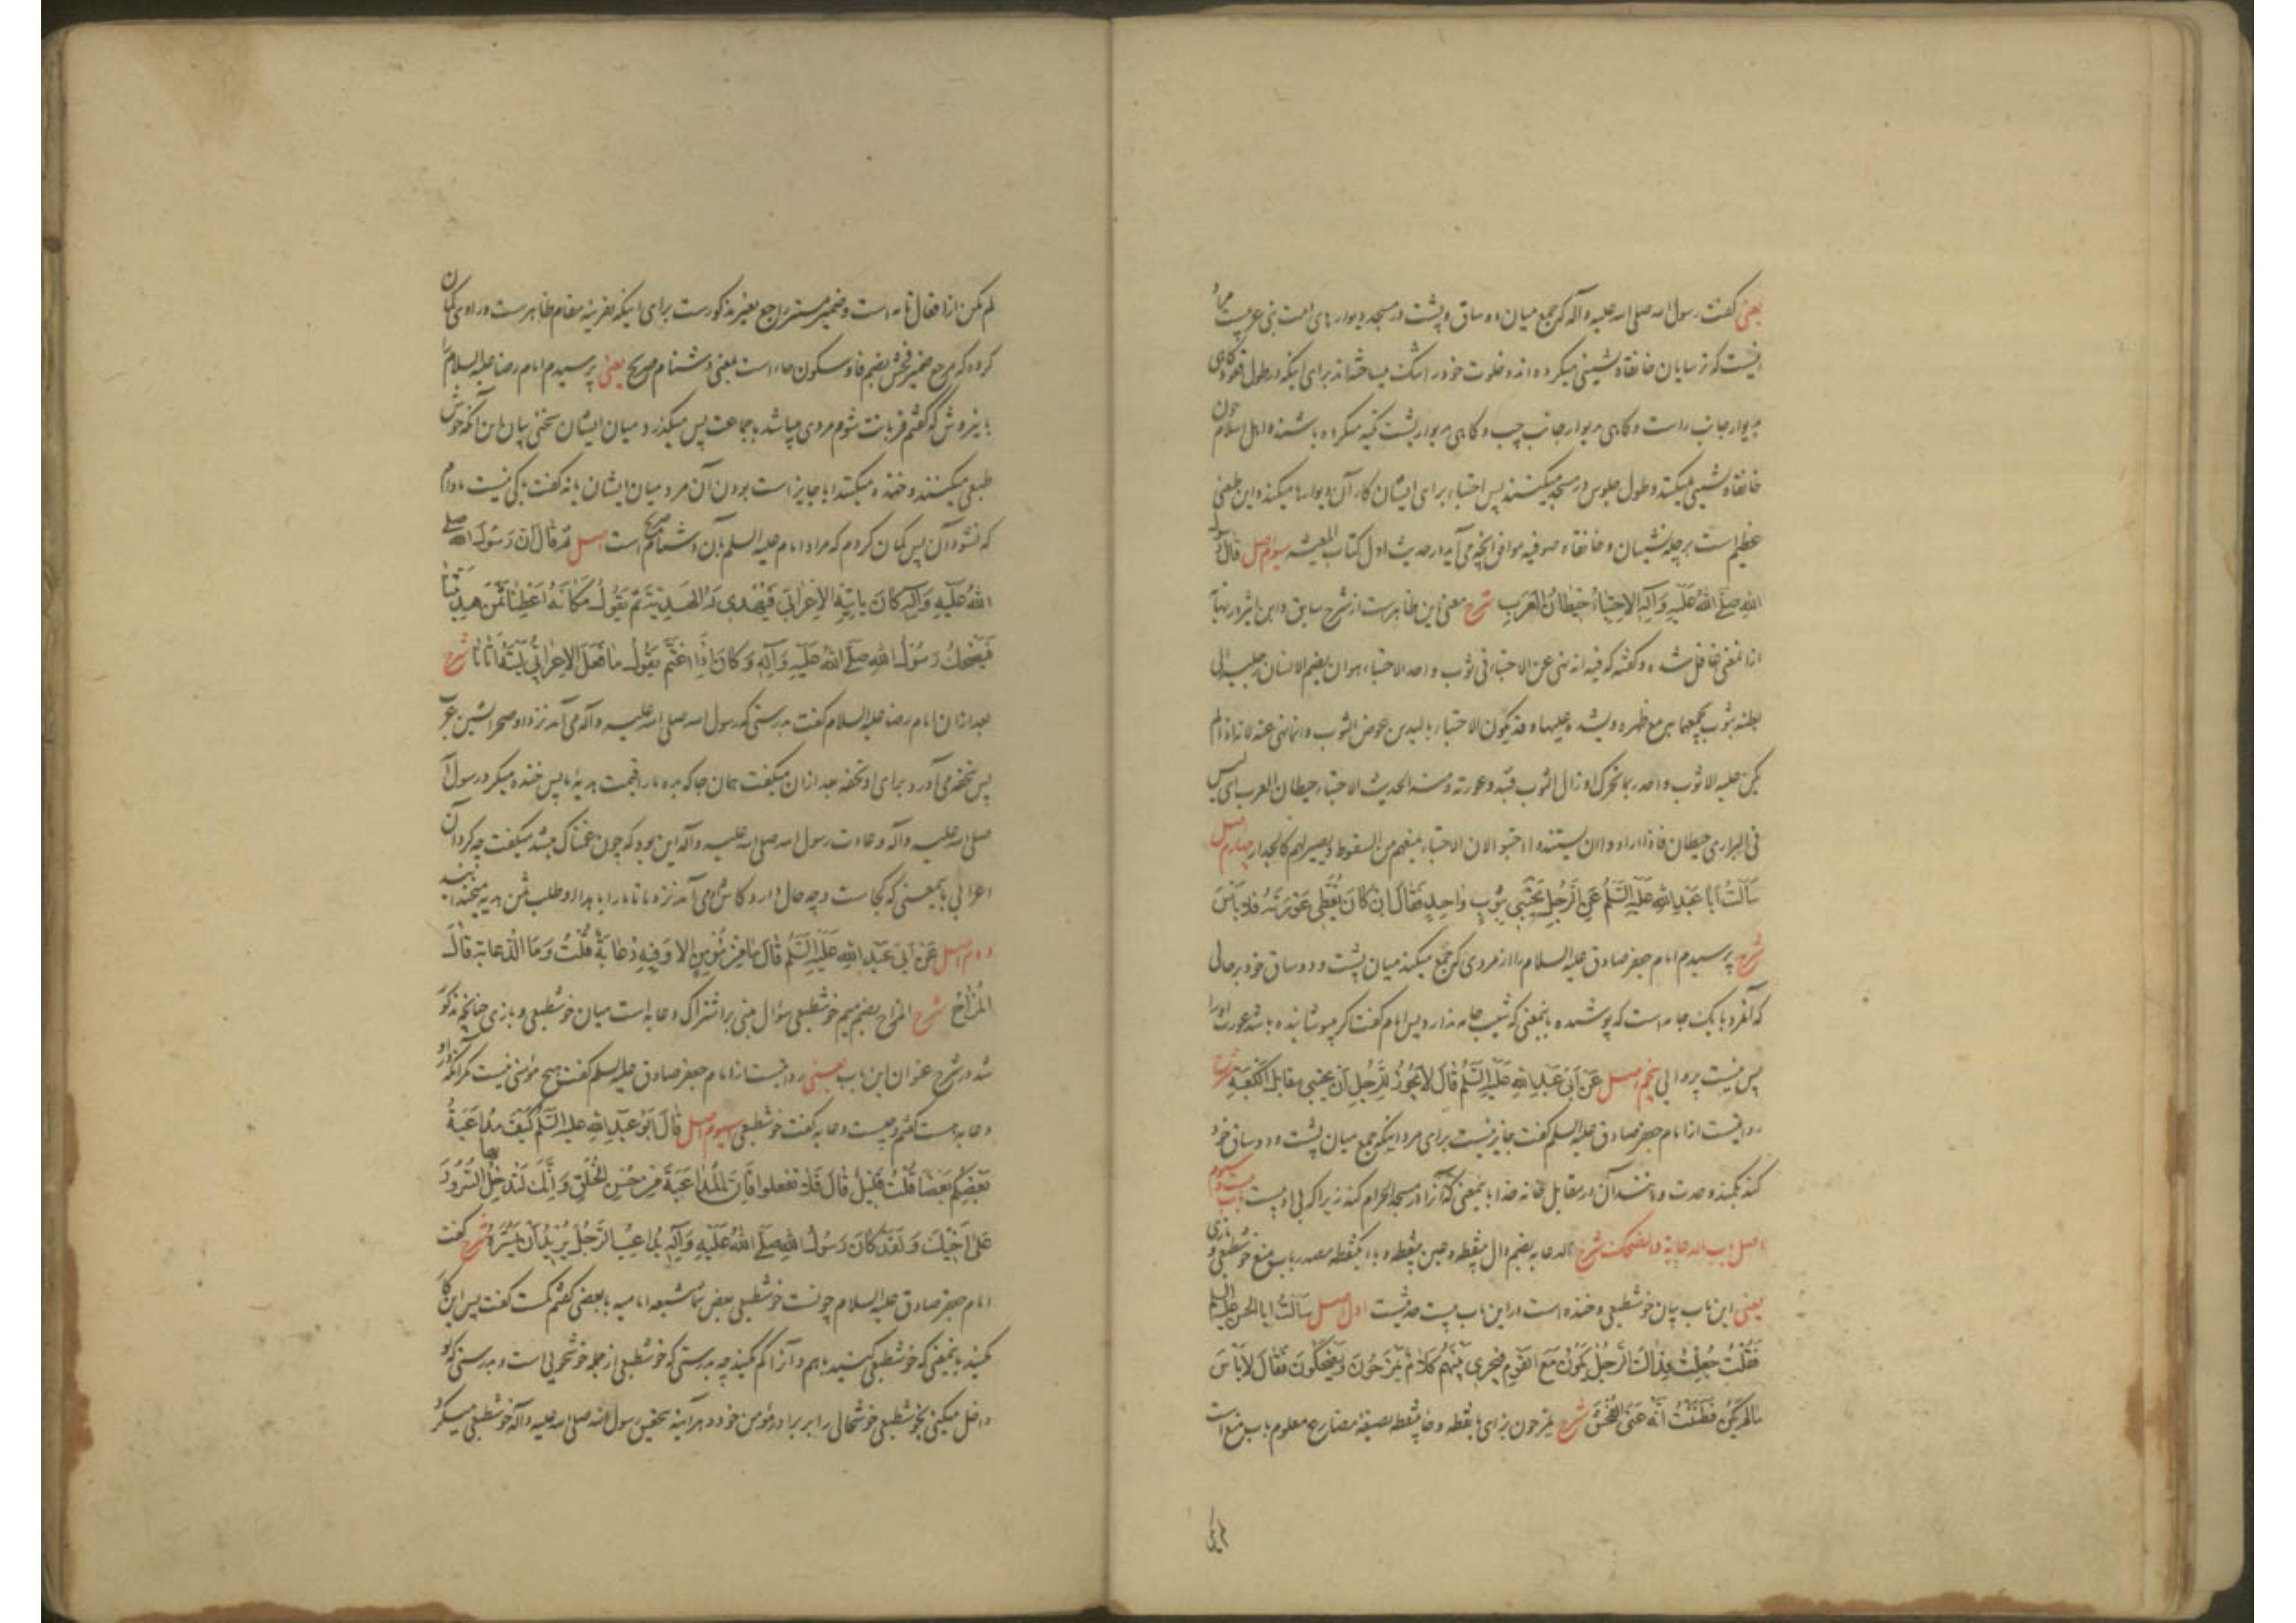 یعنی گفت رسول الله صلی الله علیه وآله که جمع میان دو ساق و پشت در مسجد دیوارهای امت نبی عربیست مراد
اینست که ترسایان خانقاه نشینی میکرده اند و خلوت خود را تنگ میساخته اند برای اینکه در طول قعود گاهی
بدیوار جانب راست و گاهی بدیوار جانب چپ و گاهی بدیوار پشت تکیه میکرده باشند و اهل اسلام چون
خانقاه نشینی نمیکنند و طول جلوس در مسجد میکنند پس احتباء برای ایشان کار آن دیوارها میکند و این طعنی
عظیم است بر چله نشینان و خانقاه صوفیه موافق آنچه می آید در حدیث اول کتاب المعیشه سیوم اصل قال رسول
اللهِ صلّی اللهُ علَیهِ وَآلِهِ الاِحتِباءُ حیطانُ العَرَبِ شرح معنی این ظاهرست از شرح سابق و ابن اثیر در نهایه
ازین معنی غافل شده و گفته که فیه انه نهی عن الاحتباء فی ثوب واحد الاحتباء هو ان یضم الانسان رجلیه الی
بطنه بثوب یجمعهما به مع ظهره ویشده علیهما و قد یکون الاحتباء بالیدین عوض الثوب وانما نهی عنه لانه اذا لم
یکن علیه الا ثوب واحد ربما تحرک او زال الثوب فتبدو عورته ومنه الحدیث الاحتباء حیطان العرب ای لیس
فی البراری حیطان فاذا ارادوا ان یستندوا احتبوا لان الاحتباء یمنعهم من السقوط ویصیر لهم کالجدار چهارم اصل
سَاَلتُ اَبا عَبدِ اللهِ عَلَیهِ السَّلمُ عَنِ الرَّجُلِ یَحتَبی بِثَوبٍ واحِدٍ فَقالَ اِن کانَ یُغَطّی عَورَتَهُ فَلا بَأسَ
شرح پرسیدم امام جعفر صادق علیه السلام را از مردی که جمع میکند میان پشت و دو ساق خود بر حالی
که آنمرد با یک جامه است که پوشیده باینمعنی که شیب جامه ندارد پس امام گفت که اگر میپوشانیده باشد عورت او را
پس نیست پروایی پنجم اصل عَن اَبی عَبدِ اللهِ عَلَیهِ السَّلمُ قالَ لا یَجُوزُ لِلرَّجُلِ اَن یَحتَبی مُقابِلَ الکَعبَةِ شرح
روایتست از امام جعفر صادق علیه السلم گفت جایز نیست برای مرد اینکه جمع میان پشت و دو ساق خود
کند بکمند وحدت و مانند آن در مقابل خانه خدا باینمعنی که آنرا در مسجد الحرام کند زیرا که بی ادبیست باب بیست و سیوم
اصل باب الدعابة والضحک شرح الدعابه بضم دال بینقطه و عین بینقطه و باء یکنقطه مصدر باب منع خوشطبعی و بازی
یعنی این باب بیان خوشطبعی و خنده است در این باب بیست حدیثست اول اصل سَاَلتُ اَبا الحَسَن علیه السلم
فَقُلتُ جُعِلتُ فِداکَ الرَّجُلُ یَکُونُ مَعَ القَومِ فَیَجری بَینَهُم کَلامٌ یَمزَحُونَ وَیَضحَکُونَ فَقالَ لا بَأسَ
ما لَم یَکُن فَظَنَنتُ اَنَّهُ عَنَی الفُحشَ شرح یمزحون بزای با نقطه و حاء بینقطه بصیغه مضارع معلوم باب منع است
لم یکن
لم یکن از افعال تامه است و ضمیر مستتر راجع بغیر مذکورست برای اینکه بقرینه مقام ظاهرست و راوی گمان
کرده که مرجع ضمیر فحش بضم فا و سکون حاء است بمعنی دشنام صریح یعنی پرسیدم امام رضا علیه السلام را
باینروش که گفتم قربانت شوم مردی میباشد با جماعت پس میگذرد میان ایشان سخنی بیان این آنکه خوش
طبعی میکنند و خنده میکنند ایا جایز است بودن آن مرد میان ایشان یا نه گفت باکی نیست مادام
که نشود آن پس گمان کردم که مراد امام علیه السلم بآن دشنام صریح است اصل ثُمَّ قالَ اِنَّ رَسُولَ الله صلی
اللهُ عَلَیهِ وَآلِهِ کانَ یَأتیهِ الاَعرابیُّ فَیُهدی لَهُ الهَدِیَّةَ ثُمَّ یَقُولُ مَکانَهُ اَعطِنا ثَمَنَ هَدِیَّتِنا
فَیَضحَکُ رَسُولُ اللهِ صلّی اللهُ عَلَیهِ وَآلِهِ وَکانَ اِذا اغتَمَّ یَقُولُ ما فَعَلَ الاَعرابیُّ لَیتَهُ اَتانا شرح
بعد از ان امام رضا علیه السلام گفت بدرستی که رسول الله صلی الله علیه وآله می آمد نزد او صحرانشین عرب
پس تحفه می آورد برای او تحفه بعد از ان میگفت همان جا که بده ما را قیمت هدیهٔ ما پس خنده میکرد رسول الله
صلی الله علیه وآله و عادت رسول الله صلی الله علیه وآله این بود که چون غمناک میشد میگفت چه کرد آن
اعرابی باینمعنی که کجاست و چه حال دارد کاش می آمد نزد ما تا ما را بابرام او طلب ثمن هدیه میخندانید
دوم اصل عَن اَبی عَبدِ اللهِ عَلَیهِ السَّلمُ قالَ ما مِن مُؤمِنٍ اِلّا وَفیهِ دُعابَةٌ قُلتُ وَمَا الدُّعابَةُ قالَ
المُزاحُ شرح المزاح بضم میم خوشطبعی سؤال مبنی بر اشتراک دعابه است میان خوشطبعی و بازی چنانچه مذکور
شد در شرح عنوان این باب یعنی روایتست از امام جعفر صادق علیه السلم گفت هیچ مؤمنی نیست مگر آنکه در او
دعابه هست گفتم و چیست دعابه گفت خوشطبعی سیوم اصل قالَ اَبُو عَبدِ اللهِ علیه السَّلمُ کَیفَ مُداعَبَةُ
بَعضِکُم بَعضًا قُلتُ قَلیلٌ قالَ فَلا تَفعَلُوا فَاِنَّ المُداعَبَةَ مِن حُسنِ الخُلقِ وَاِنَّکَ لَتُدخِلُ بها السُّرُورَ
عَلی اَخیکَ وَلَقَد کانَ رَسُولُ اللهِ صلّی اللهُ عَلَیهِ وَآلِهِ یُداعِبُ الرَّجُلَ یُریدُ اَن یَسُرَّهُ شرح گفت
امام جعفر صادق علیه السلام چونست خوشطبعی بعض شما شیعه امامیه با بعضی گفتم کمست گفت پس این کار
مکنید باینمعنی که خوشطبعی کنید باهم و آنرا کم مکنید چه بدرستی که خوشطبعی از جمله خوشخویی است و بدرستی که تو
داخل میکنی بخوشطبعی خوشحالی را بر برادر مؤمن خود و هرآینه بتحقیق رسول الله صلی الله علیه وآله خوشطبعی میکرد